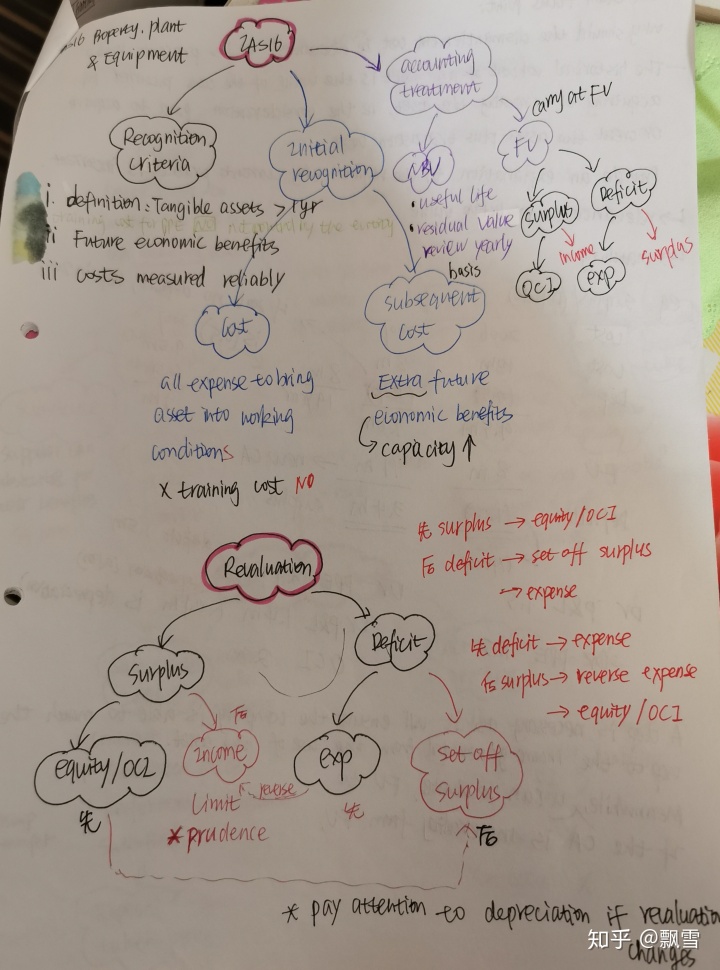 Property, plant
& Equipment
IAS16
accounting
treatment
Recognition
criteria
Initial
recognition
NBV
carry at FV
FV
i definition: Tangible assets > 1yr
ii Future economic benefits
iii costs measured reliably
• useful life
• residual value
review yearly
basis
surplus
Deficit
income
surplus
OCI
exp
Cost
subsequent
cost
all expense to bring
asset into working
conditions
x training cost NO
Extra future
economic benefits
capacity ↑
先 surplus → equity/OCI
后 deficit → set off surplus
→ expense
先 deficit → expense
后 surplus → reverse expense
→ equity/OCI
Revaluation
Surplus
Deficit
equity/OCI
先
后
Income
Limit
* prudence
reverse
exp
先
set off
surplus
后
* pay attention to depreciation if revaluation
changes
知乎 @飘雪